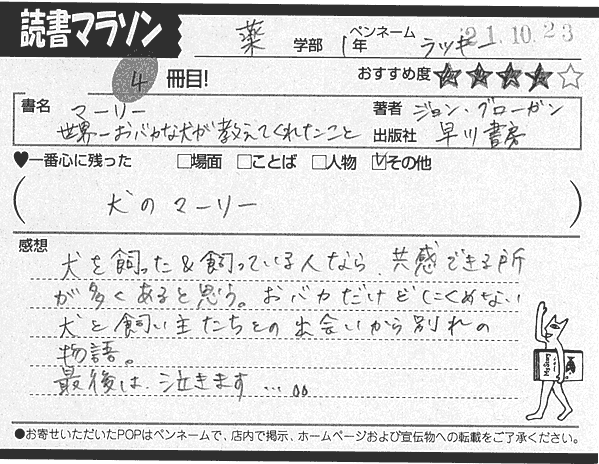 読書マラソン
薬 学部 1年 ペンネーム ラッキー
21.10.23
4 冊目!
おすすめ度 ★★★★☆
書名 マーリー
世界一おバカな犬が教えてくれたこと
著者 ジョン・グローガン
出版社 早川書房
♥一番心に残った □場面 □ことば □人物 ☑その他
(犬のマーリー)
感想
犬を飼った&飼っている人なら、共感できる所
が多くあると思う。おバカだけどにくめない
犬と飼い主たちとの出会いから別れの
物語。
最後は、泣きます…。。
●お寄せいただいたPOPはペンネームで、店内で掲示、ホームページおよび宣伝物への転載をご了承ください。